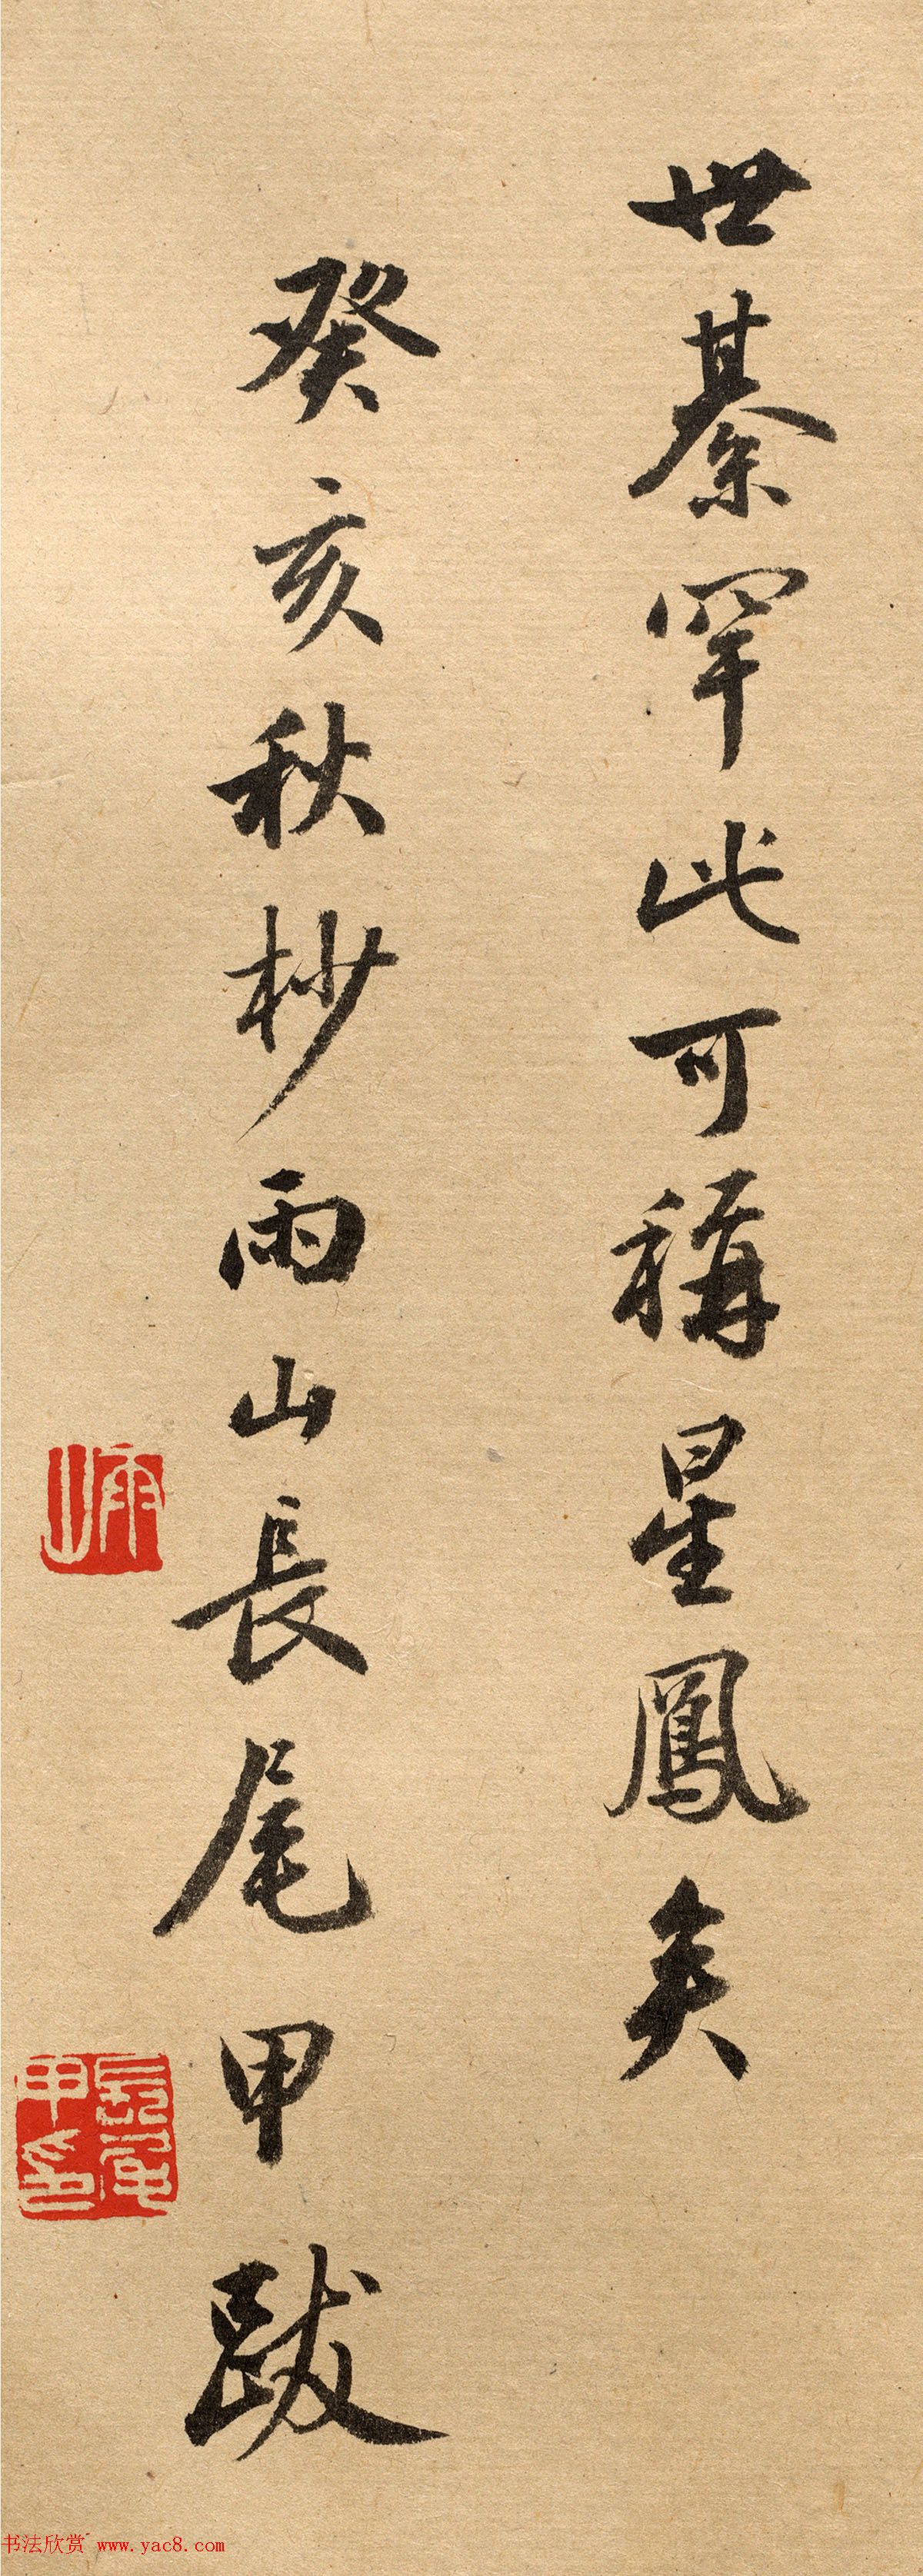 世綦罕此可稱星鳳矣
癸亥秋杪雨山長尾甲跋
雨山
長尾甲印
书法欣赏 www.yac8.com